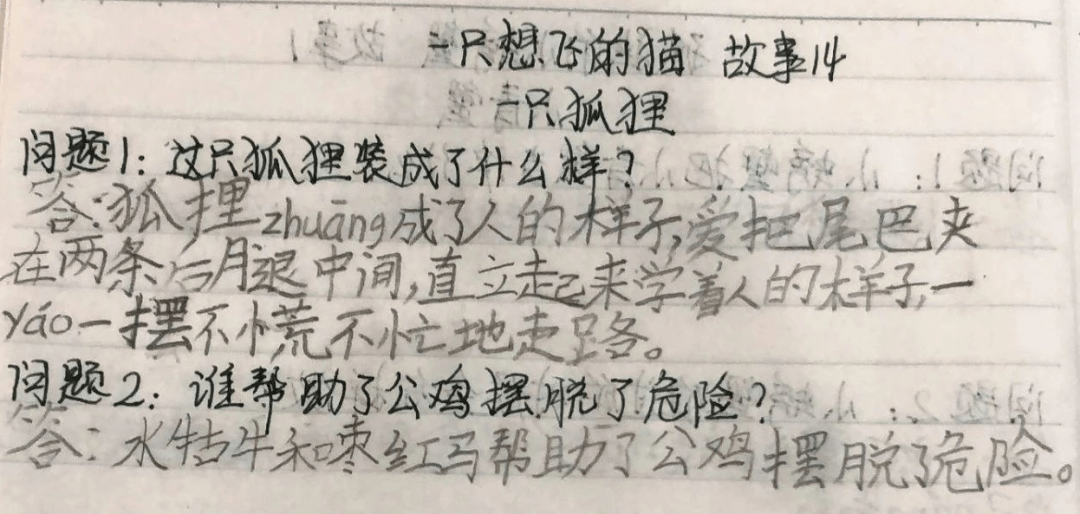 一只想飞的猫 故事14
一只狐狸
问题1:这只狐狸装成了什么样?
答:狐狸zhuāng成了人的样子,爱把尾巴夹
在两条后腿中间,直立起来学着人的样子,一
yáo一摆不慌不忙地走路。
问题2:谁帮助了公鸡摆脱了危险?
答:水牯牛和枣红马帮助了公鸡摆脱了危险。